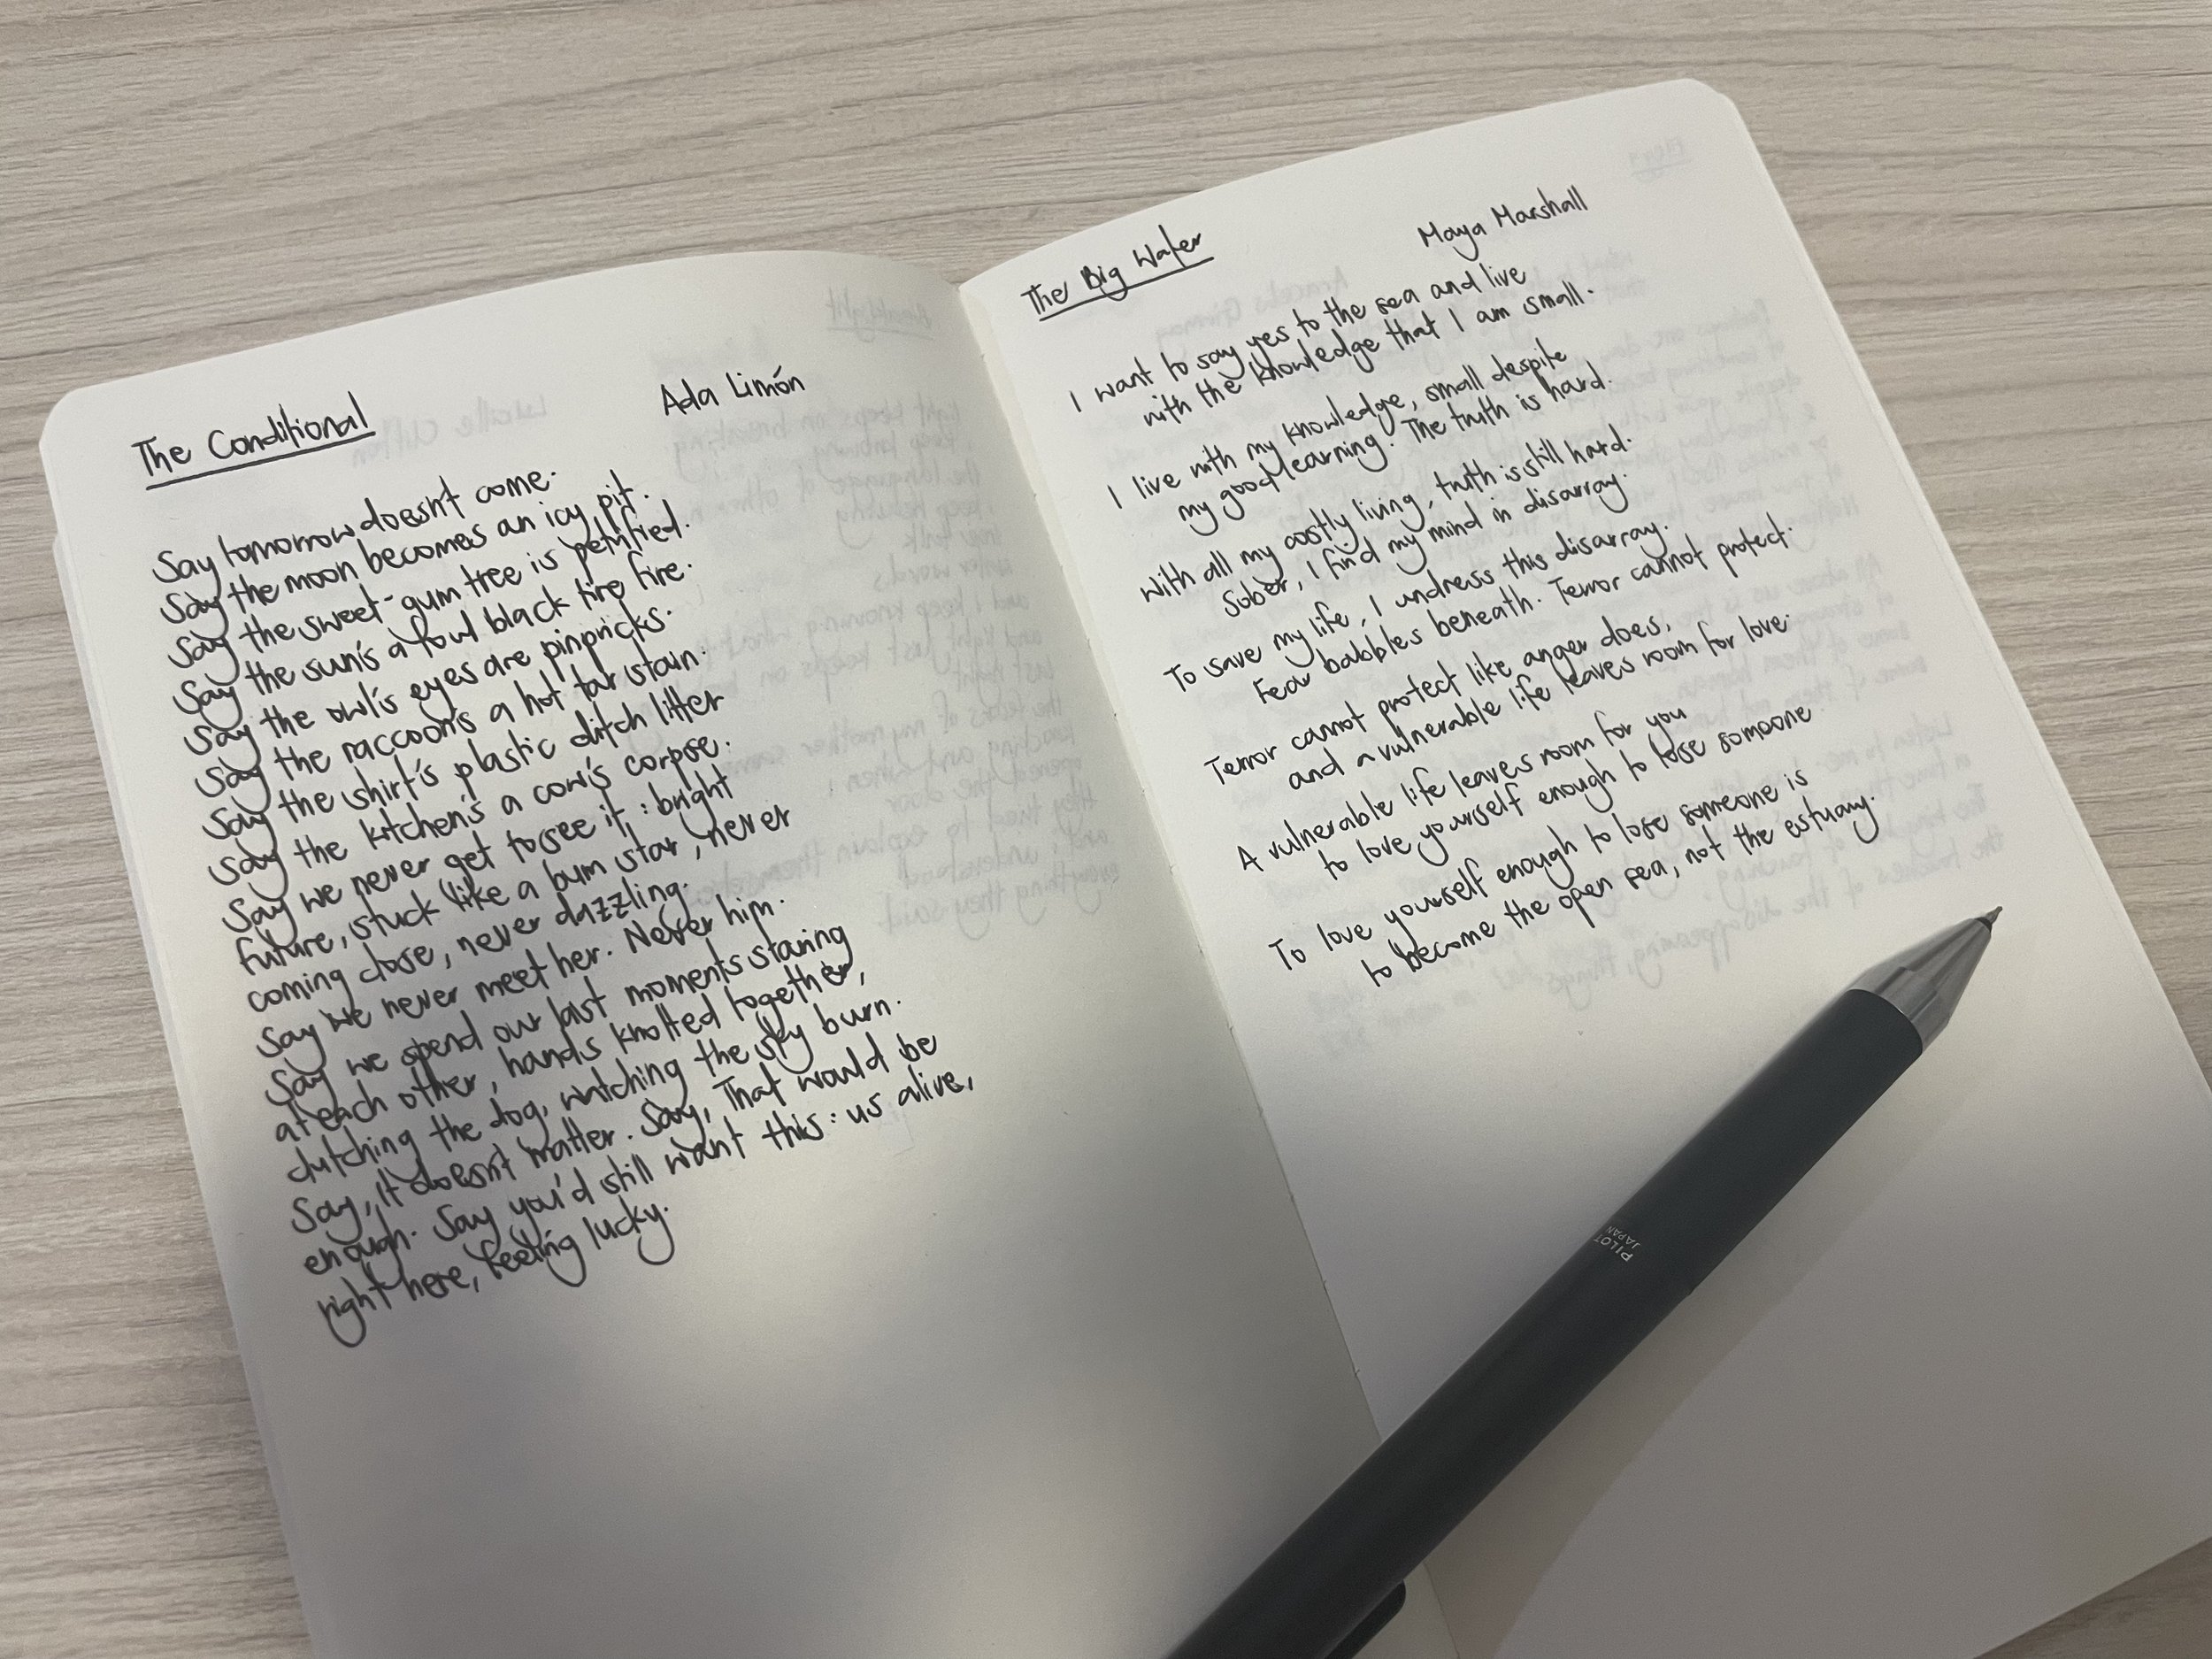 The Conditional
Ada Limón
Say tomorrow doesn't come.
Say the moon becomes an icy pit.
Say the sweet-gum tree is petrified.
Say the sun's a fowl black tire fire.
Say the owl's eyes are pinpricks.
Say the raccoon's a hot tar stain.
Say the shirt's plastic ditch litter
Say the kitchen's a cow's corpse.
Say we never get to see it: bright
future, stuck like a bum star, never
coming close, never dazzling.
Say we never meet her. Never him.
Say we spend our last moments staring
at each other, hands knotted together,
clutching the dog, watching the sky burn.
Say, It doesn't matter. Say, That would be
enough. Say you'd still want this: us alive,
right here, feeling lucky.
The Big Water
Maya Marshall
I want to say yes to the sea and live
with the knowledge that I am small.
I live with my knowledge, small despite
my good learning. The truth is hard.
With all my costly living, truth is still hard.
Sober, I find my mind in disarray.
To save my life, I undress this disarray.
Fear babbles beneath. Terror cannot protect.
Terror cannot protect like anger does,
and a vulnerable life leaves room for love.
A vulnerable life leaves room for you
to love yourself enough to lose someone.
To love yourself enough to lose someone is
to become the open sea, not the estuary.
PILOT
JAPAN